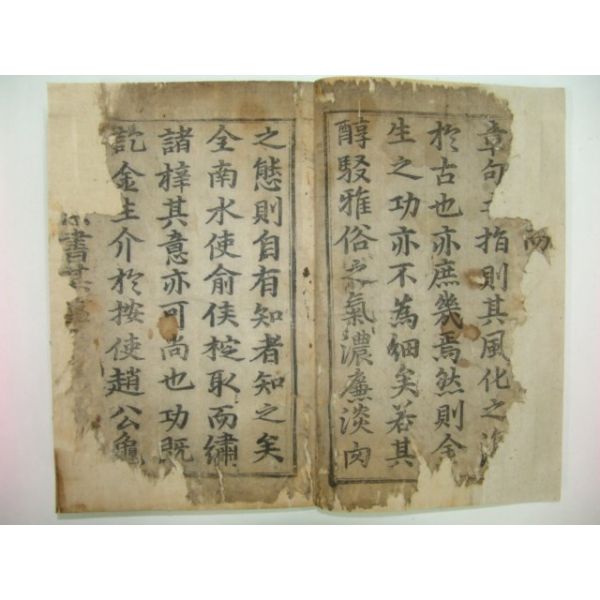 而
章句指則其風化之
於古也亦庶幾焉然則全
生之功亦不為細矣若其
醇駁雅俗之氣濃廉淡肉
之態則自有知者知之矣
全南水使俞侯椌取而繡
諸梓其意亦可尚也功既
訖金主介於按使趙公龜
書其